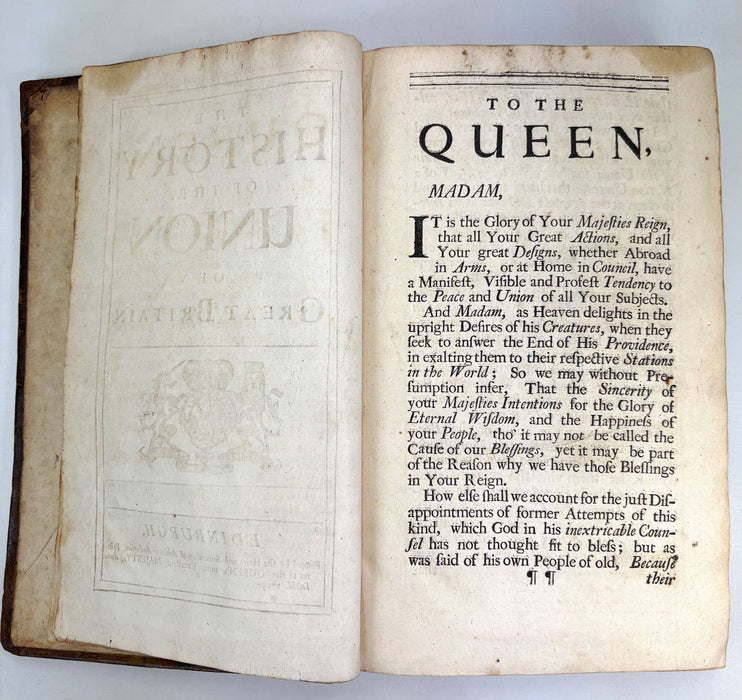 THE
HISTORY
OF THE
UNION
OF
GREAT BRITAIN.
EDINBURGH,
TO THE
QUEEN,
MADAM,
IT is the Glory of Your Majeſties Reign,
that all Your Great Actions, and all
Your great Deſigns, whether Abroad
in Arms, or at Home in Council, have
a Manifeſt, Viſible and Profeſt Tendency to
the Peace and Union of all Your Subjects.
And Madam, as Heaven delights in the
upright Deſires of his Creatures, when they
ſeek to anſwer the End of His Providence,
in exalting them to their reſpective Stations
in the World; So we may without Pre-
ſumption infer, That the Sincerity of
your Majeſties Intentions for the Glory of
Eternal Wiſdom, and the Happineſs of
your People, tho' it may not be called the
Cauſe of our Bleſſings, yet it may be part
of the Reaſon why we have thoſe Bleſſings
in Your Reign.
How elſe ſhall we account for the juſt Diſ-
appointments of former Attempts of this
kind, which God in his inextricable Coun-
ſel has not thought fit to bleſs; but as
was ſaid of his own People of old, Becauſe
¶ ¶ their